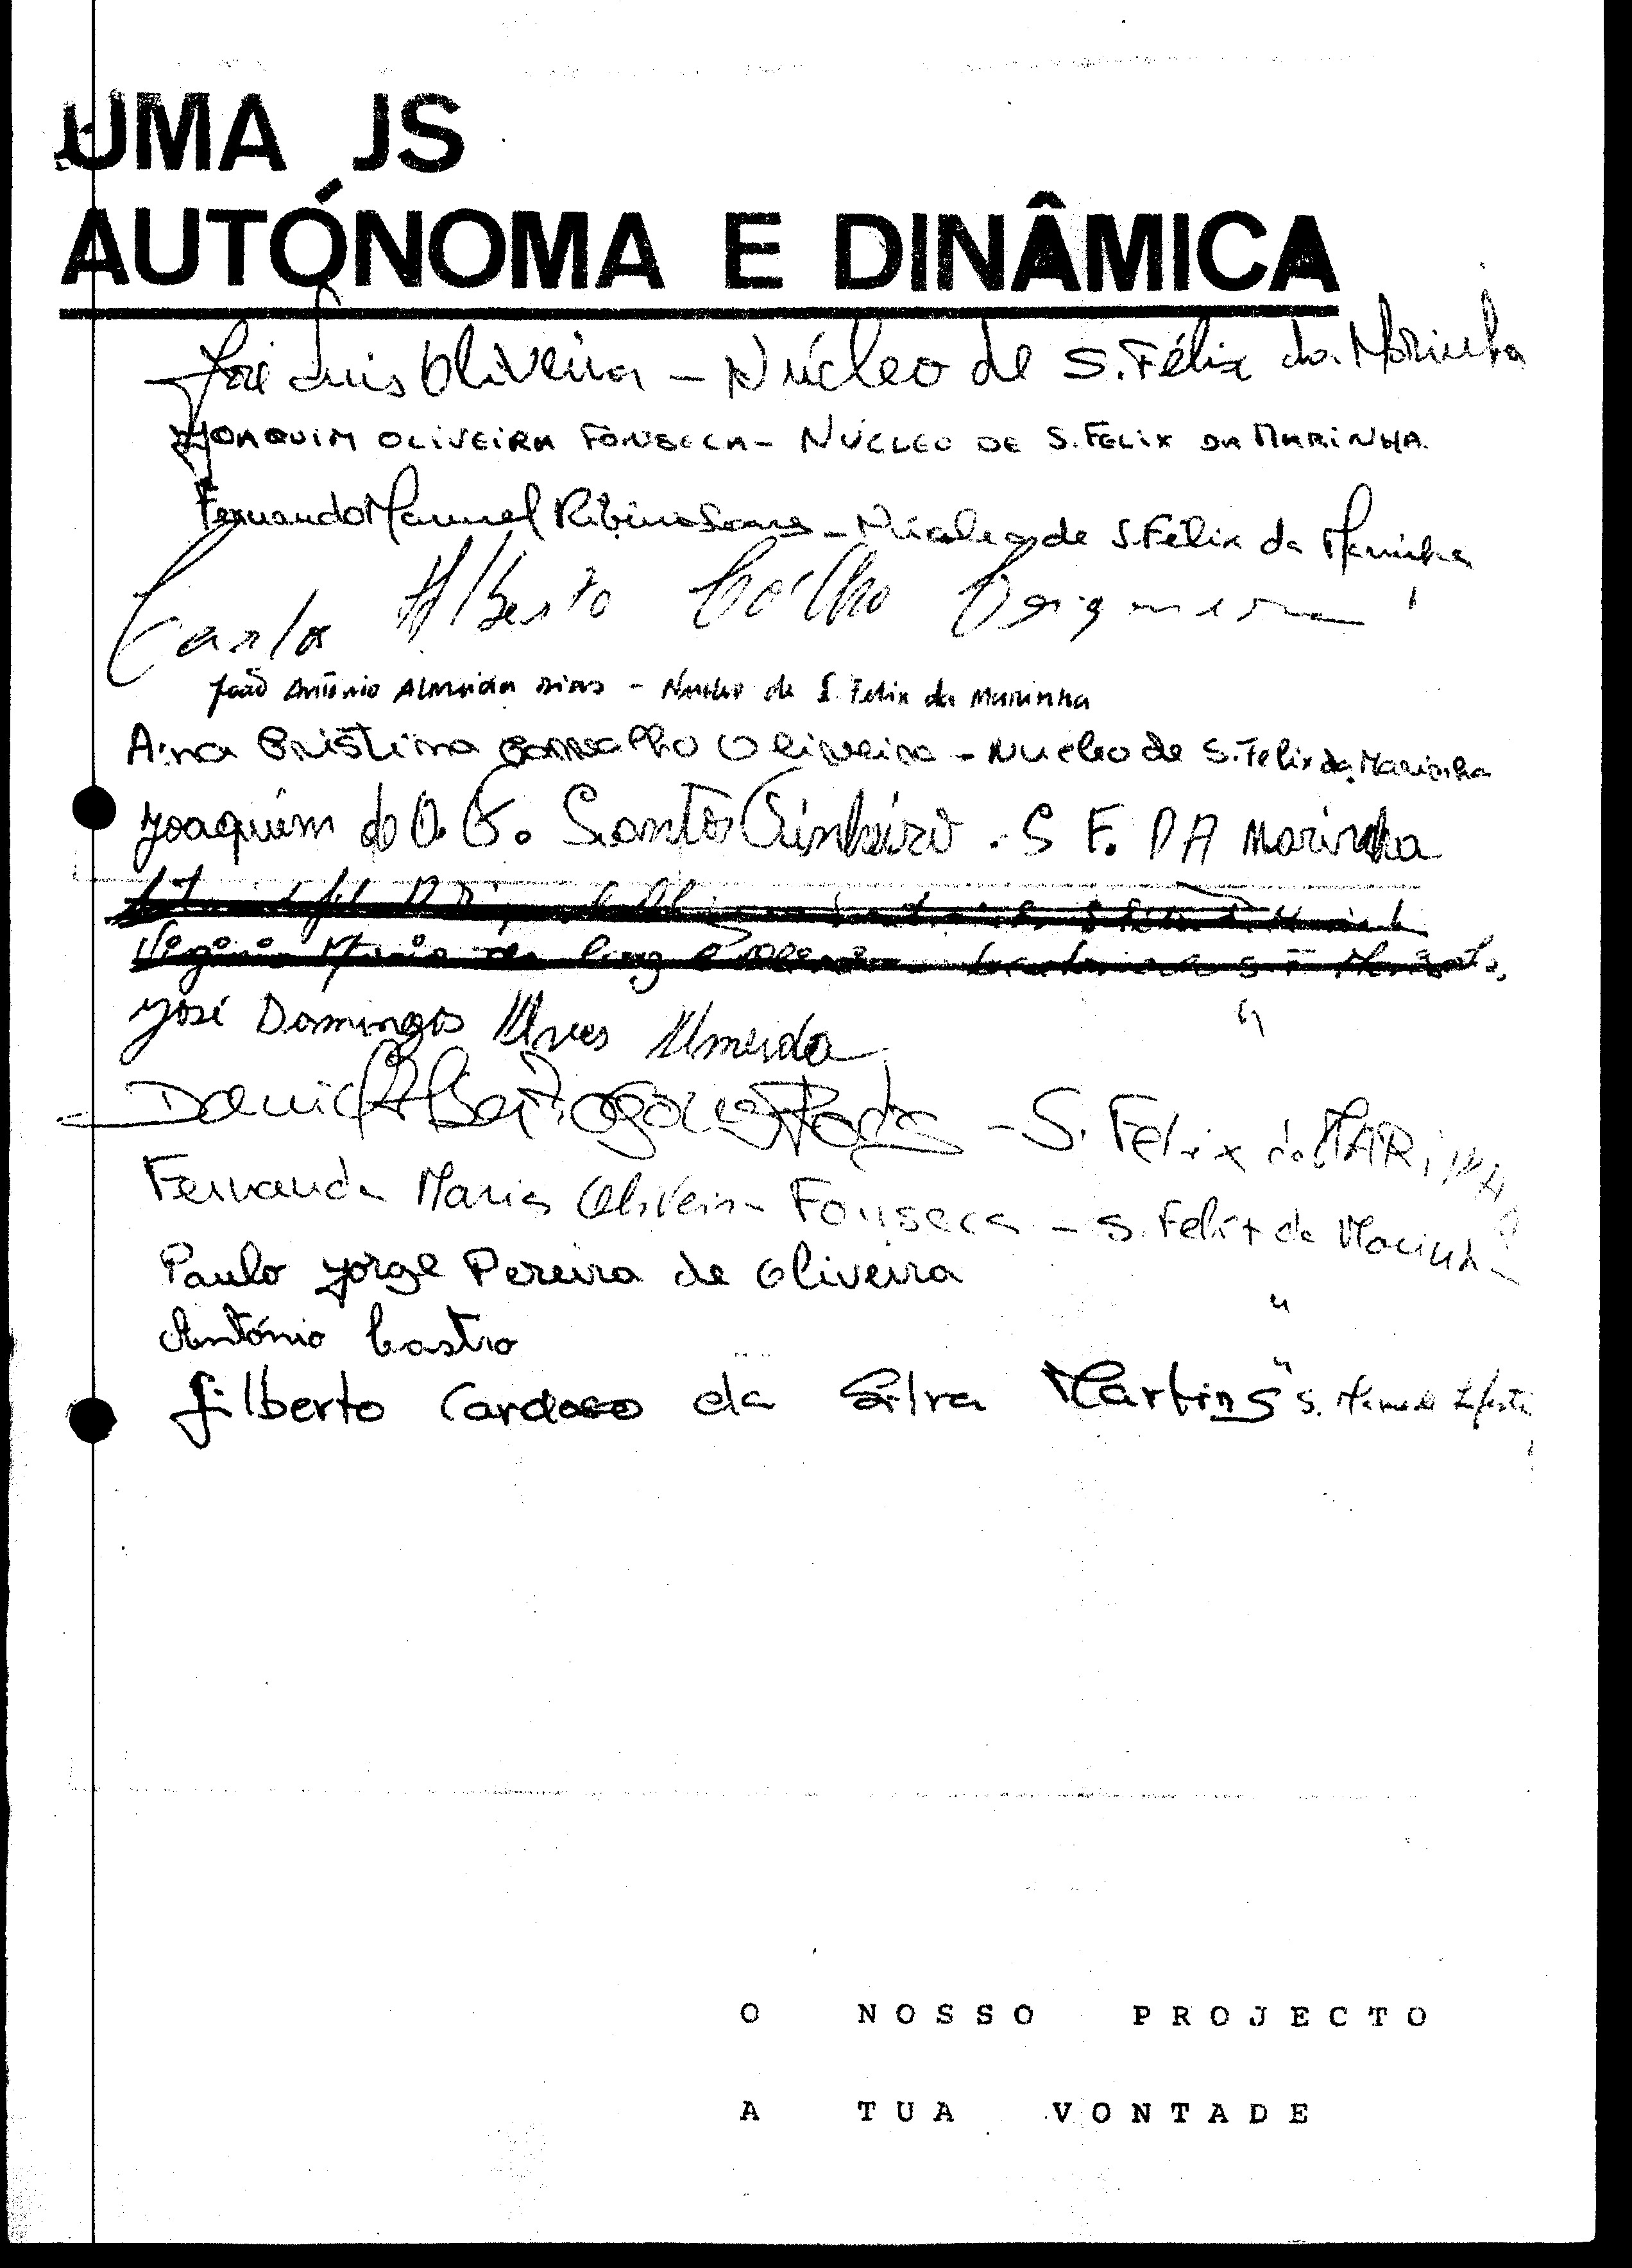 UMA JS
AUTÓNOMA E DINÂMICA
José Luis Oliveira - Núcleo de S. Félix da Marinha
JOAQUIM OLIVEIRA FONSECA - NÚCLEO DE S. FELIX DA MARINHA
Fernando Manuel Ribeiro Soares - Núcleo de S. Félix da Marinha
Carlos Alberto Coelho
João António Almeida Dias - Nucleo de S. Felix da Marinha
Ana Cristina Carvalho Oliveira - Nucleo de S. Felix da Marinha
Joaquim do O. G. Santos Pinheiro - S F. DA Marinha
Virginia Maria da Cruz
José Domingos Alves Almeida "
Daniel Alberto - S. Felix da MARINHA
Fernanda Maria Oliveira Fonseca - S. Felix da Marinha
Paulo Jorge Pereira de Oliveira "
António Castro "
Gilberto Cardoso da Silva Martins S. Mamede Infesta
O NOSSO PROJECTO
A TUA VONTADE